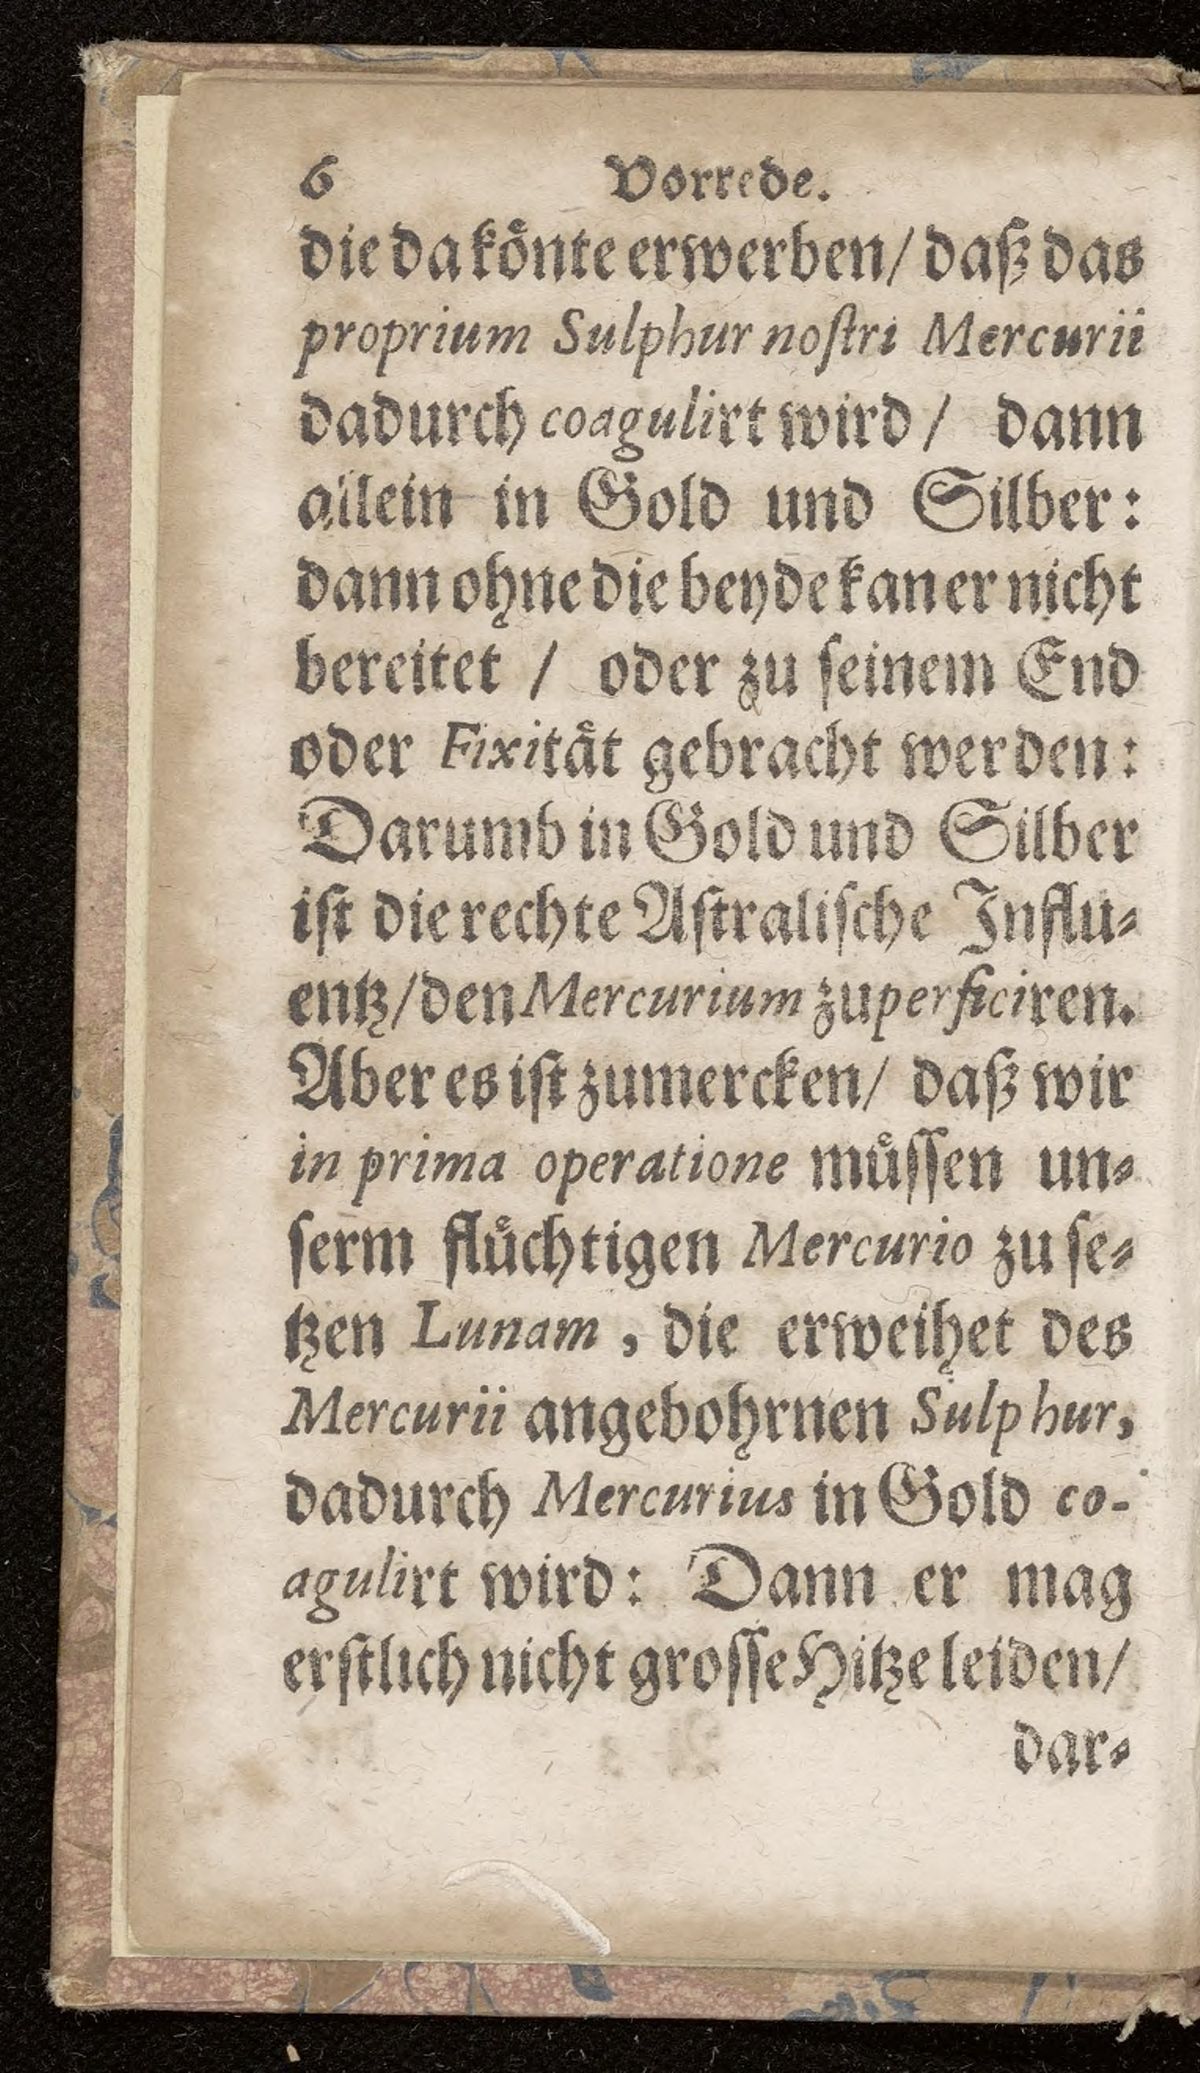 6 Vorrede.
die da koͤnte erwerben/ daß das
proprium Sulphur noſtri Mercurii
dadurch coagulirt wird/ dann
allein in Gold und Silber:
dann ohne die beyde kan er nicht
bereitet / oder zu ſeinem End
oder Fixitaͤt gebracht werden:
Darumb in Gold und Silber
iſt die rechte Aſtraliſche Influ⸗
entz/ den Mercurium zu perficiren.
Aber es iſt zumercken/ daß wir
in prima operatione muͤſſen un⸗
ſerm fluͤchtigen Mercurio zu ſe⸗
tzen Lunam, die erweihet des
Mercurii angebohrnen Sulphur,
dadurch Mercurius in Gold co-
agulirt wird: Dann er mag
erſtlich nicht groſſe Hitze leiden/
dar⸗